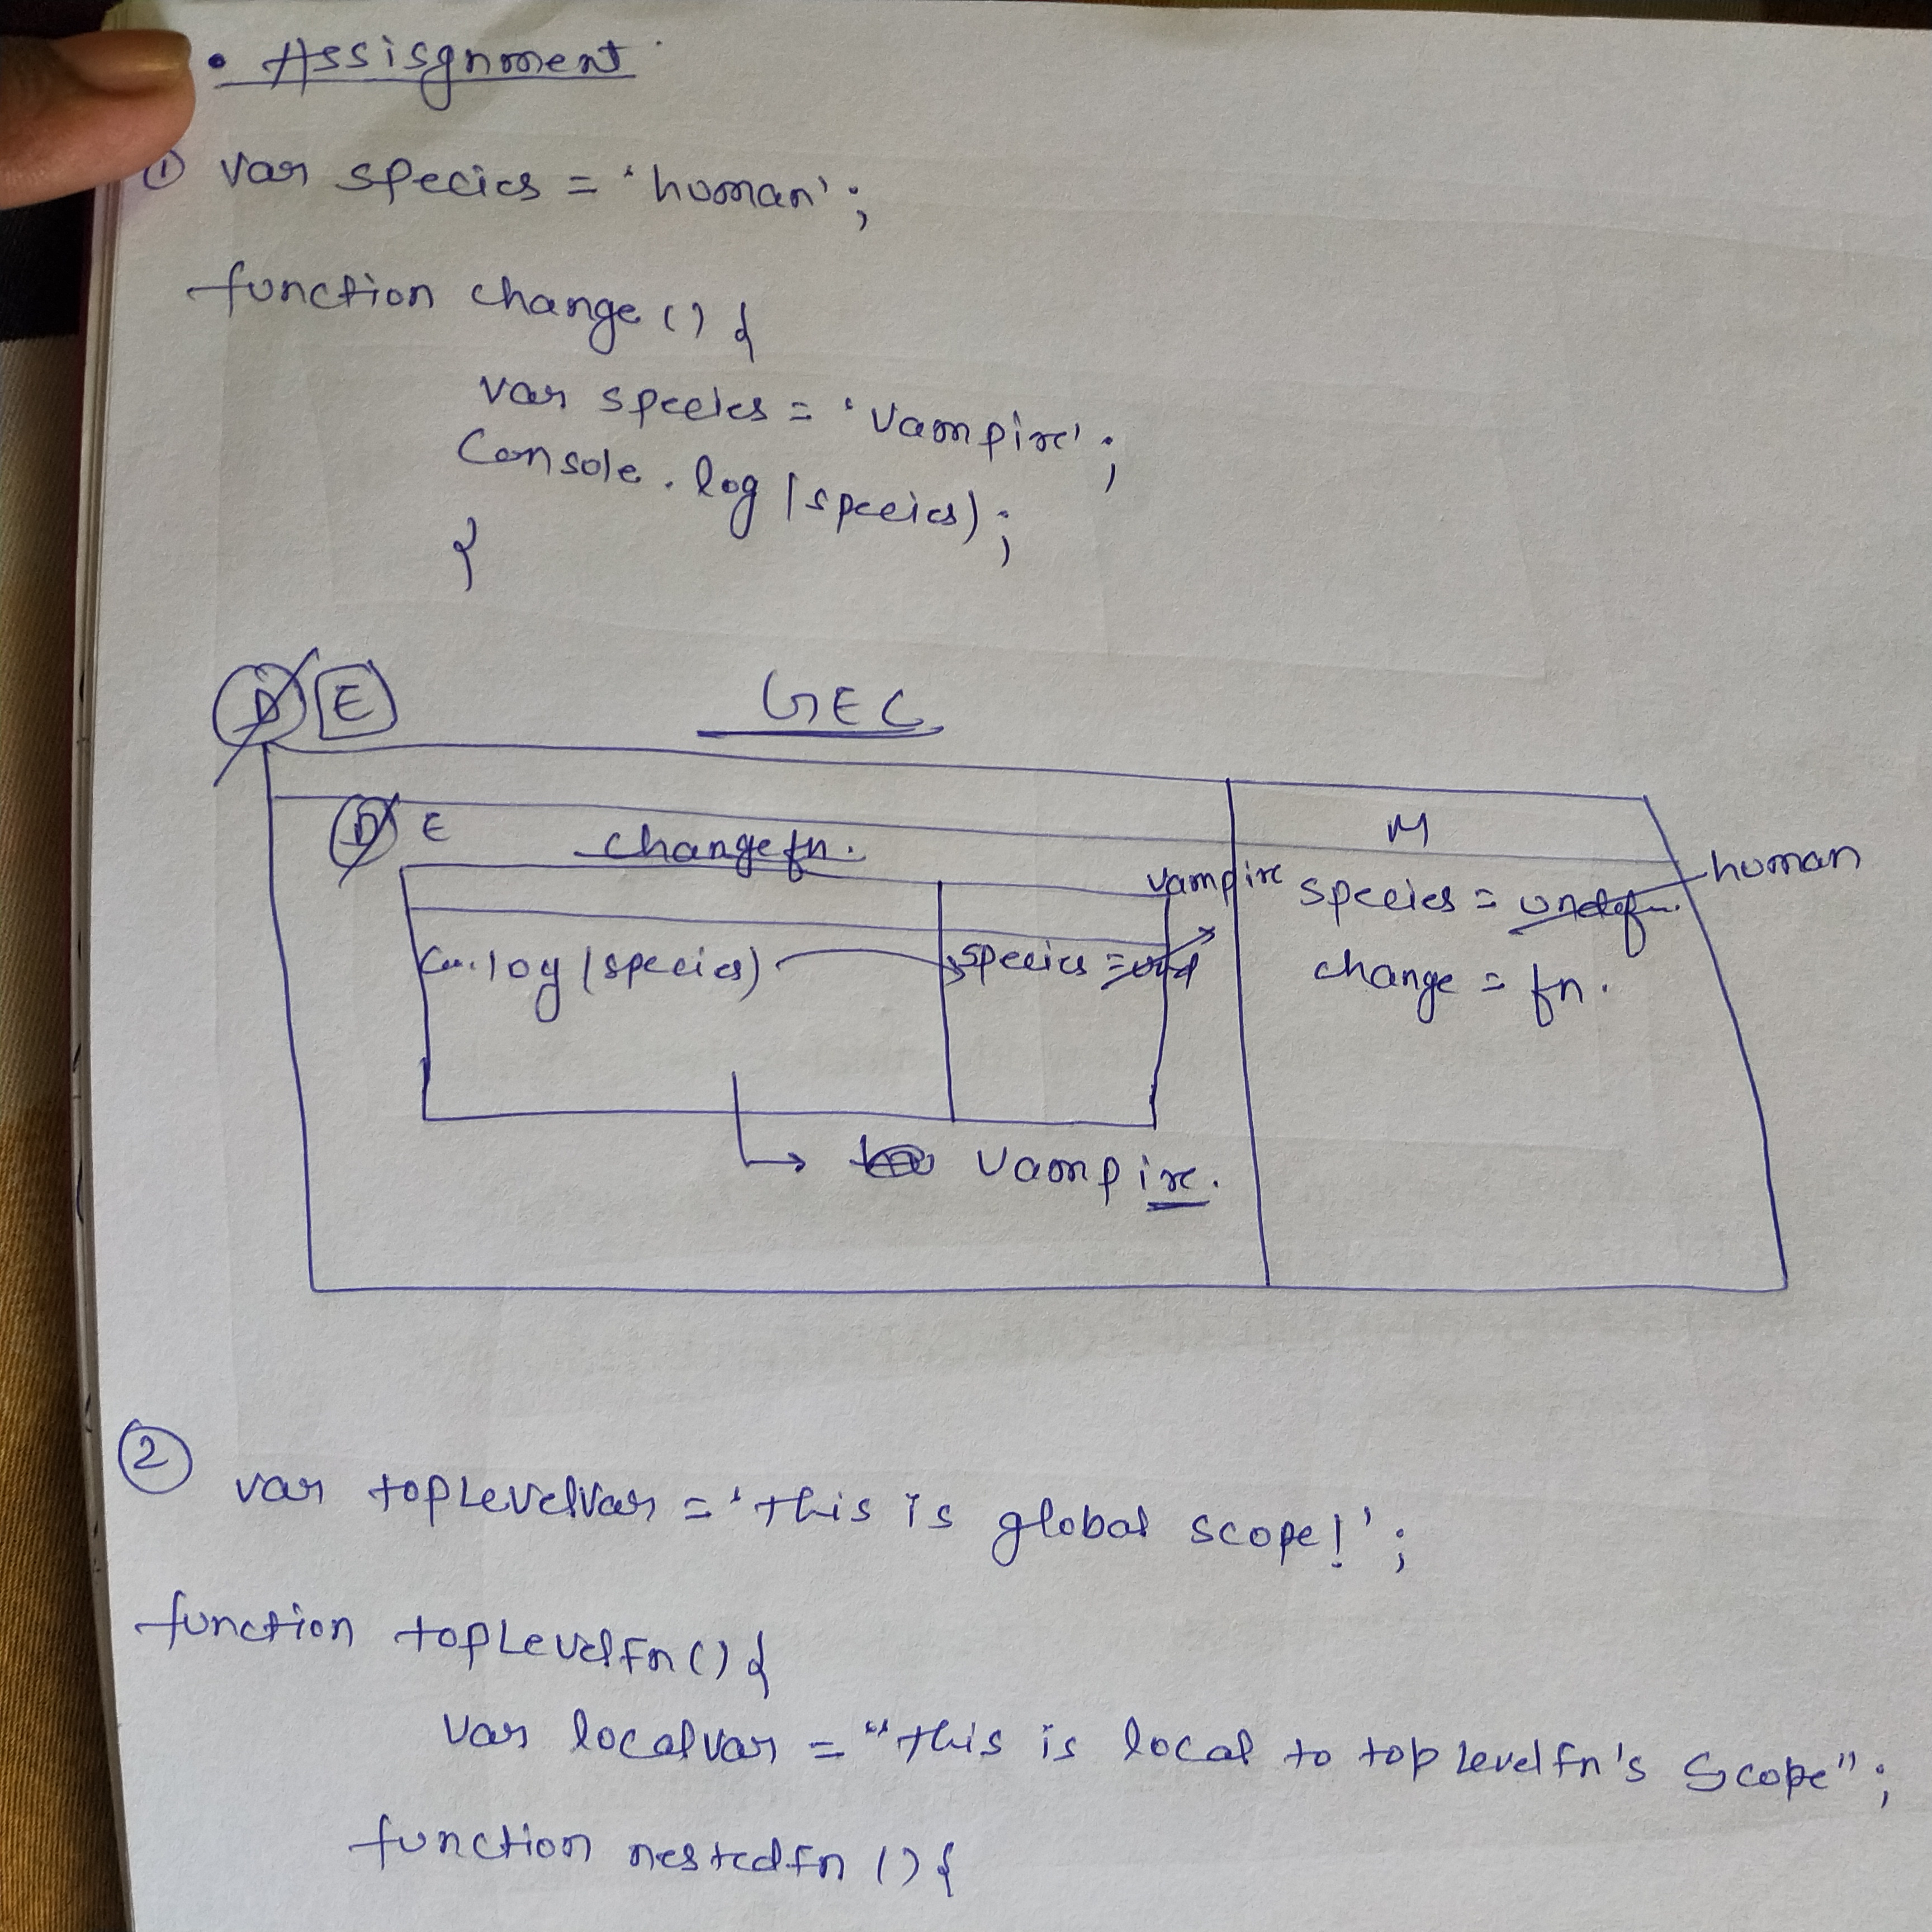 • Assisgnment
① var species = 'human';
function change () {
var species = 'vampire';
Console.log(species);
}
D E
GEC
D E
change fn.
M
vampire
human
species = undefn.
Co.log(species)
species = und
change = fn.
→ vampire.
②
var topLevelVar = 'This is global scope!';
function topLevelFn() {
var localvar = "This is local to topLevelfn's Scope";
function nestedfn () {